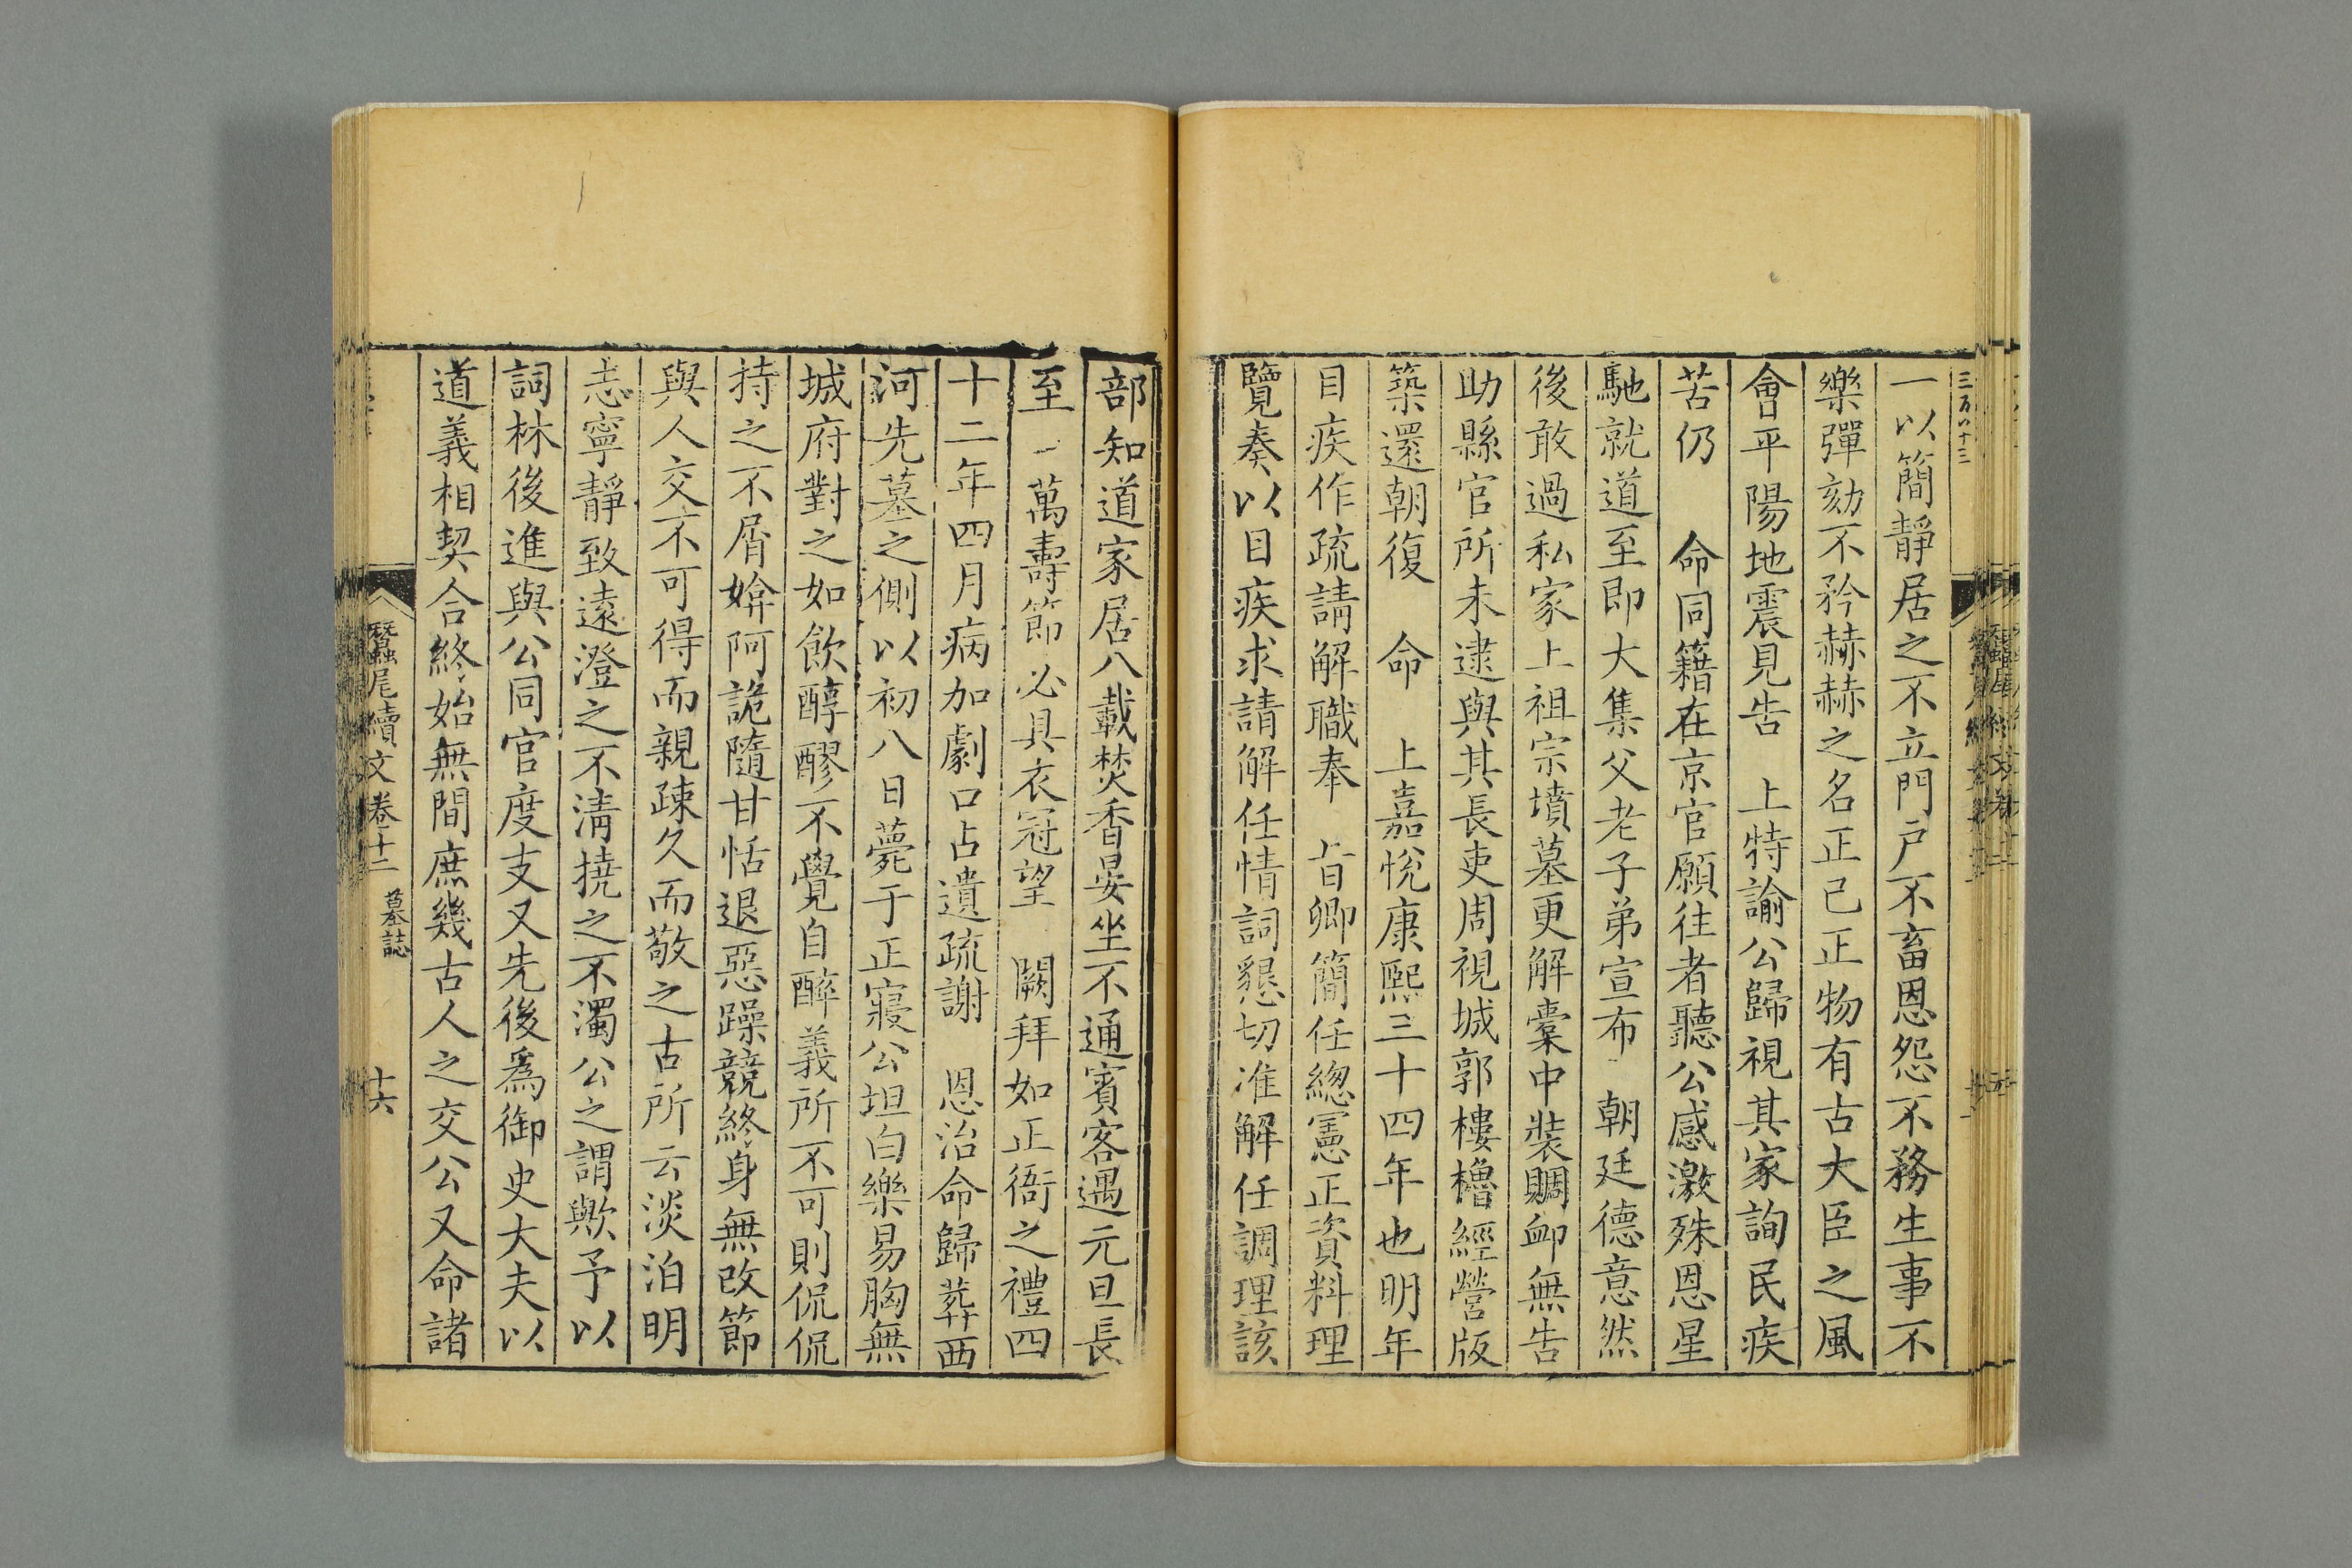 一以簡靜居之不立門戶不畜恩怨不務生事不
樂彈劾不矜赫赫之名正己正物有古大臣之風
會平陽地震見告　上特諭公歸視其家詢民疾
苦仍　命同籍在京官願往者聽公感激殊恩星
馳就道至即大集父老子弟宣布　朝廷德意然
後敢過私家上祖宗墳墓更解槖中裝賙卹無告
助縣官所未逮與其長吏周視城郭樓櫓經營版
築還朝復　命　上嘉悅康熙三十四年也明年
目疾作疏請解職奉　旨卿簡任總憲正資料理
覽奏以目疾求請解任情詞懇切准解任調理該
部知道家居八載焚香晏坐不通賓客遇元旦長
至　萬壽節必具衣冠望　闕拜如正衙之禮四
十二年四月病加劇口占遺疏謝　恩治命歸葬西
河先墓之側以初八日薨于正寢公坦白樂易胸無
城府對之如飲醇醪不覺自醉義所不可則侃侃
持之不屑媕阿詭隨甘恬退惡躁競終身無改節
與人交不可得而親疎久而敬之古所云淡泊明
志寧靜致遠澄之不淸撓之不濁公之謂歟予以
詞林後進與公同官度支又先後爲御史大夫以
道義相契合終始無間庶幾古人之交公又命諸
蠶尾續文卷十二　墓誌　十六